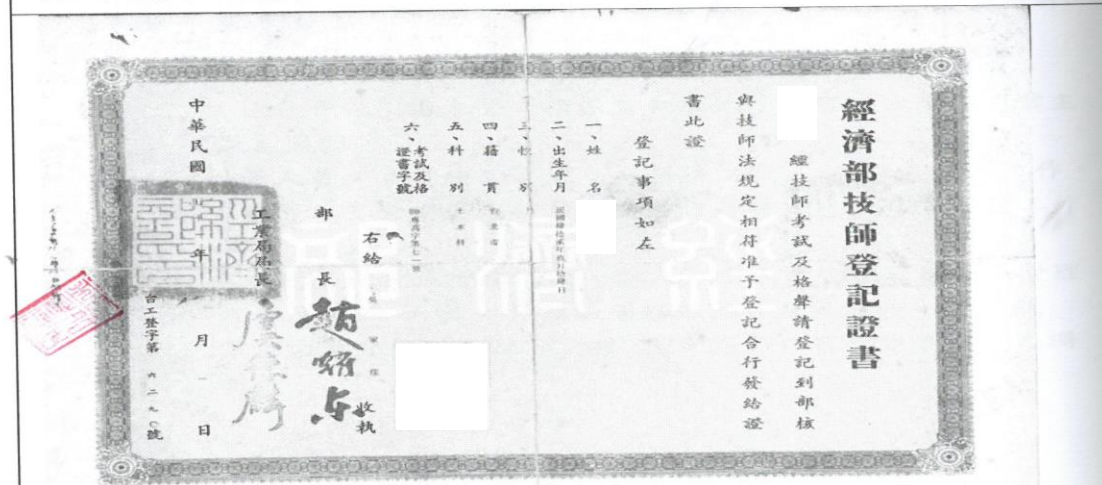 經濟部技師登記證書
經技師考試及格聲請登記到部核
與技師法規定相符准予登記合行發給證
書此證
登記事項如左
一、姓名
二、出生年月
三、性別
四、籍貫
五、科別 土木科
六、考試及格證書字號
右給
收執
部長 趙耀东
工業局局長
中華民國 年 月 日
台工登字第六二九〇號
經濟部